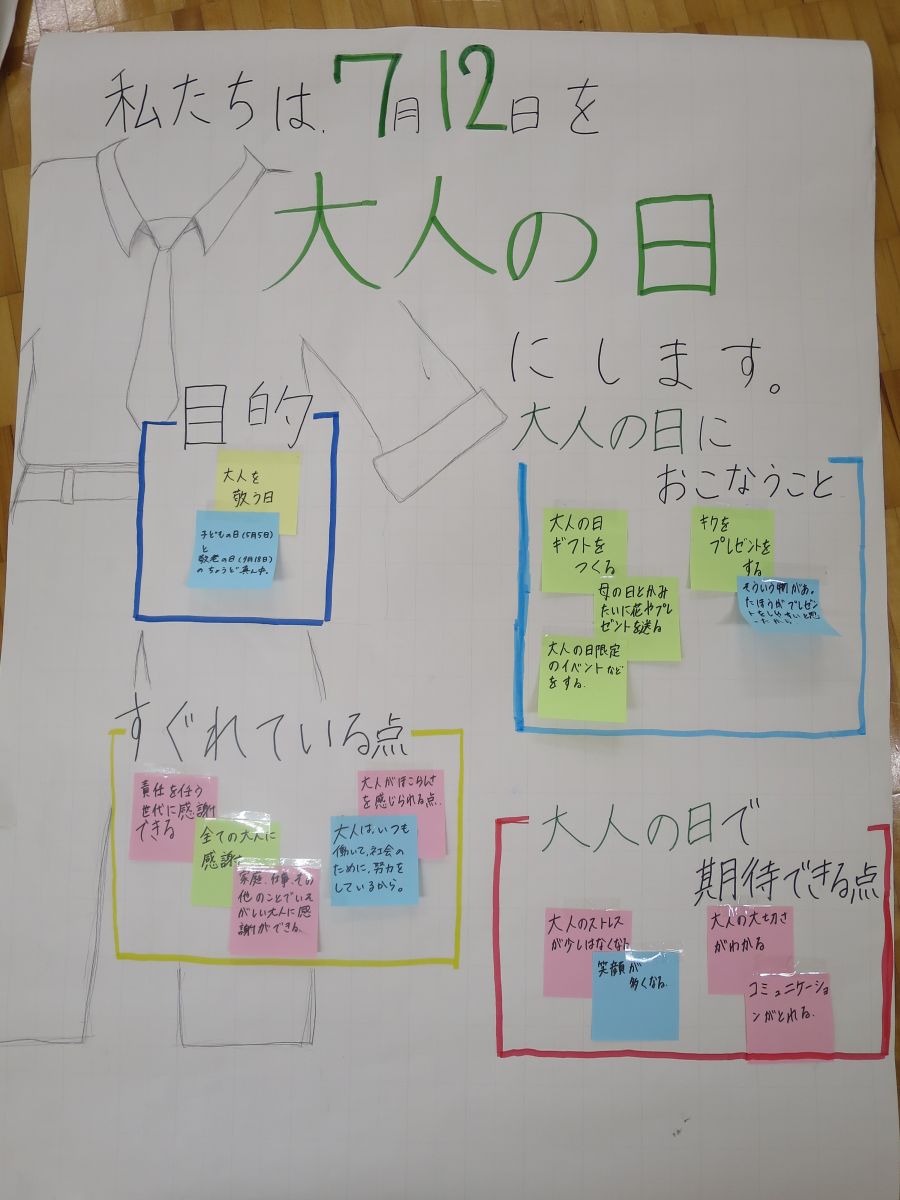 私たちは、7月12日を
大人の日
にします。
目的
大人を
敬う日
子どもの日(5月5日)
と
敬老の日(9月18日)
のちょうど真ん中。
大人の日に
おこなうこと
大人の日
ギフトを
つくる
母の日とかみ
たいに花やプレ
ゼントを送る
大人の日限定
のイベントなど
をする。
キクを
プレゼントを
する
そういう物があっ
たほうがプレゼン
トをしやすいと思
ったから
すぐれている点
責任を任う
世代に感謝
できる
全ての大人に
感謝
家庭、仕事、その
他のことでいそ
がしい大人に感
謝ができる。
大人がほこらしさ
を感じられる点。
大人は、いつも
働いて、社会の
ために、努力を
しているから。
大人の日で
期待できる点
大人のストレス
が少しはなくなる
笑顔が
多くなる。
大人の大切さ
がわかる
コミュニケーショ
ンがとれる。